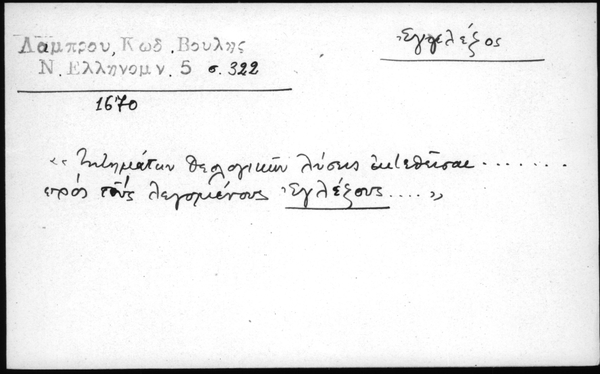 Λάμπρου, Κωδ. Βουλης
Ν. Ελληνομν. 5 σ. 322
Ἐγγλέζος
1670
«Ζητημάτων θεολογικῶν λύσεις ἐκτεθεῖσαι .......
πρός τοὺς λεγομένους Ἐγλέζους ....»